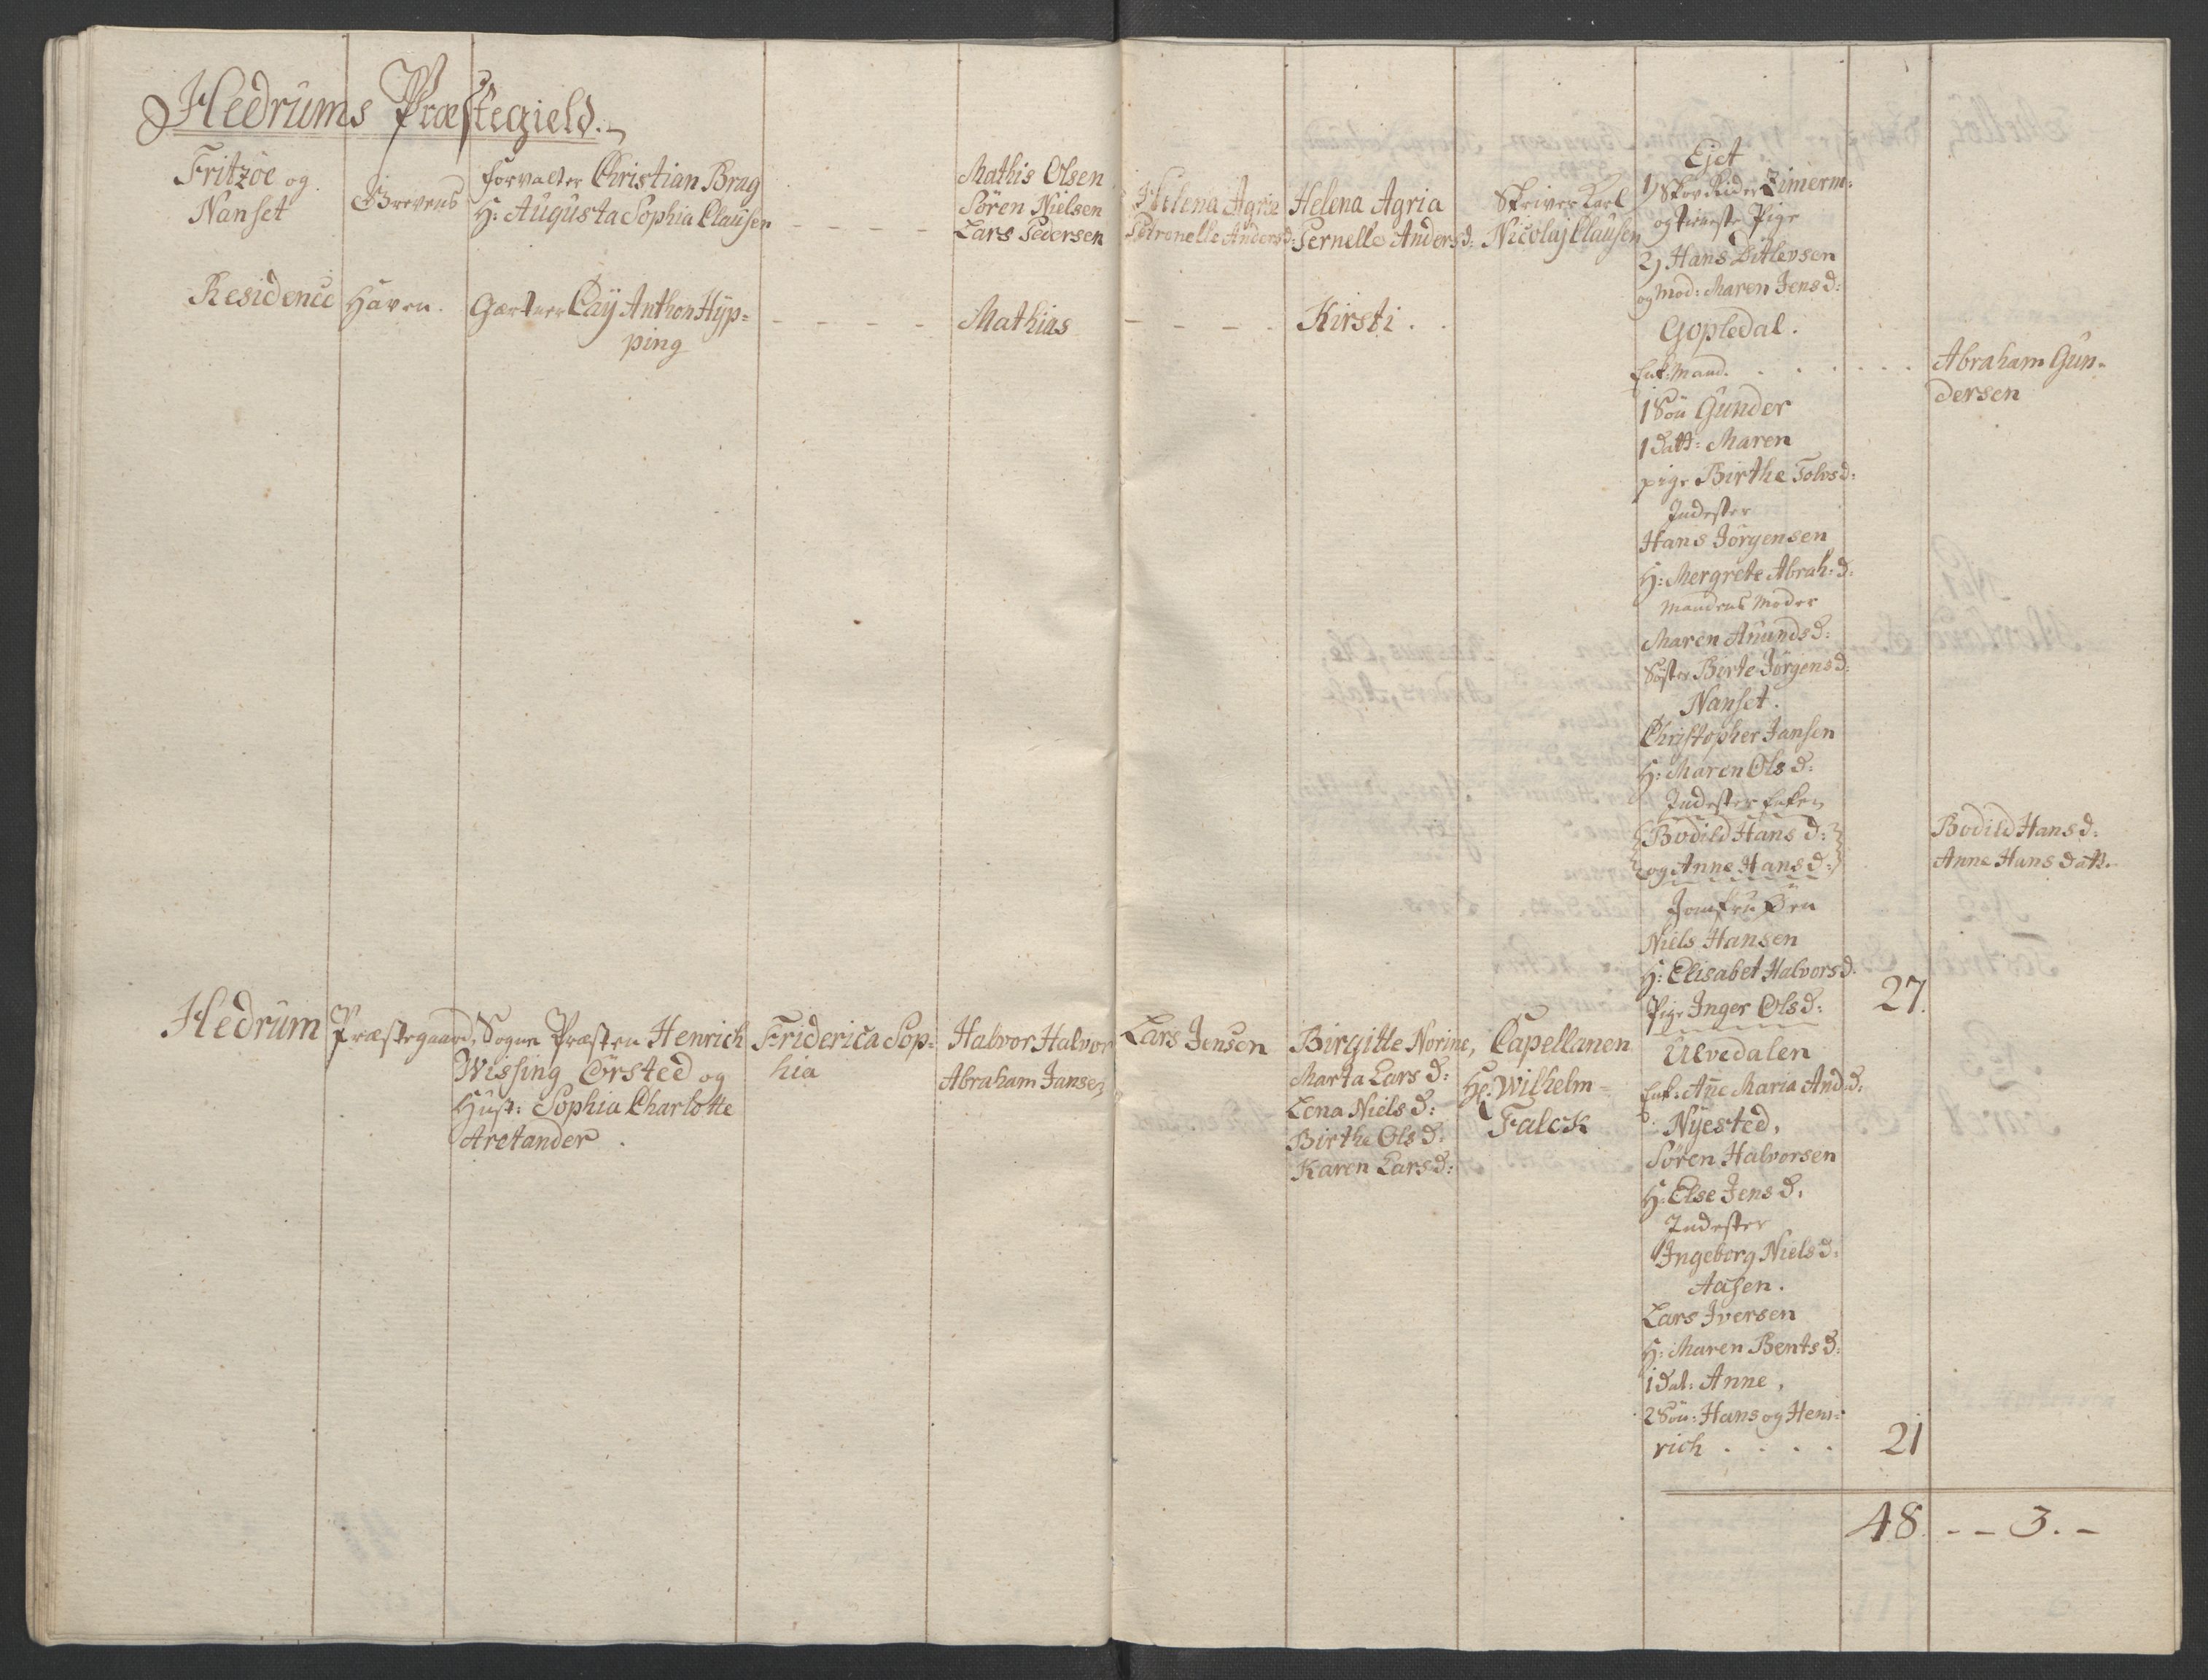 Hedrums Præstegield.
Fritzöe og
Nanset
Grevens
Forvalter Christian Brag
H: Augusta Sophia Clausen
Mathis Olsen
Sören Nielsen
Lars Pedersen
Helena Agria
Petronelle Andersd:
Helena Agria
Pernelle Andersd:
Skriver Karl
Nicolaj Clausen
Residence
Haven.
Gartner Caÿ Anthon Hÿp=
ping
Mathias
Kirsti . .
Ejet
1) Skov Rider Zimerm:
og tieneste Pige
2) Hans Ditlevsen
og Mod: Maren Jensd:
Gopledal.
Enk: Mand.
1 Sön Gunder
1 Datt: Maren
pige Birthe Tolvsd:
Inderster
Hans Jörgensen
H: Mergrete Abrah:d:
Mandens Moder
Maren Anundsd:
Söster Birte Jörgensd:
Nanset.
Christopher Jansen
H: Maren Olsd:
Inderster Enken
Bodild Hansd:
og Anne Hansd:
Jomfru Öen
Niels Hansen
H: Elisabet Halvorsd.
Pige Inger Olsd:
27.
Abraham Gun-
dersen
Bodild Hansd:
Anne Hansdatt.
Hedrum
Præstegaard,
Sogne Præsten Henrich
Wissing Örsted og
Hust: Sophia Charlotte
Aretander .
Friderica Sop=
hia
Halvor Halvor
Abraham Jansen
Lars Jensen
Birgitte Norine,
Marta Larsd:
Lena Nielsd:
Birthe Olsd:
Karen Larsd:
Capellanen
Hr: Wilhelm
Falck
Ulvedalen
Enk: Añe Maria And:d:
Nÿested,
Sören Halvorsen
H: Else Jensd.
Inderster
Ingeborg Nielsd:
Aasen.
Lars Iversen
H: Maren Bentsd:
1 Dat: Anne,
2 Sön: Hans og Hen=
rich . . . .
21
48. - - 3. -